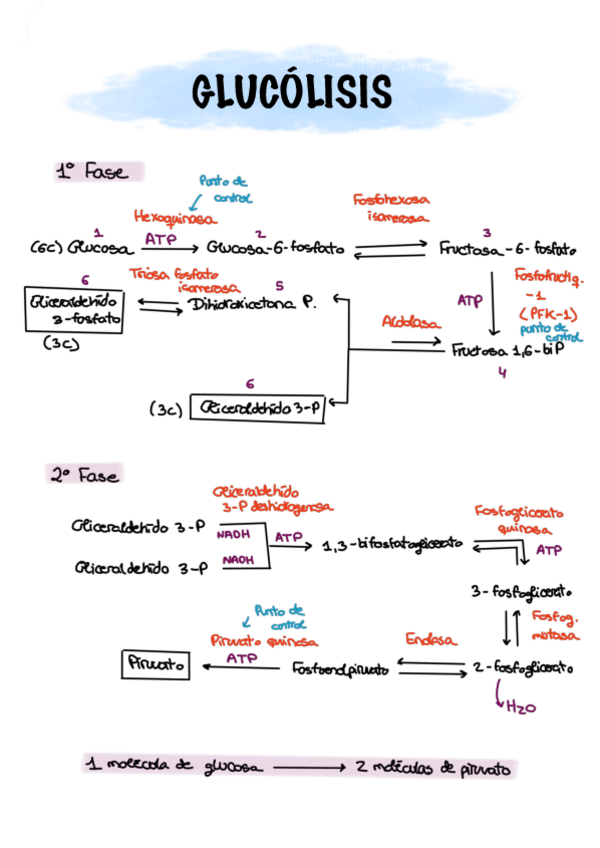 GLUCÓLISIS
1º Fase
Punto de
control
Hexoquinasa
Fosfohexosa
isomerasa
1
2
3
(6C) Glucosa
ATP
Glucosa-6-fosfato
Fructosa-6-fosfato
6
Triosa fosfato
isomerasa
5
Gliceraldehído
3-fosfato
Dihidroxiacetona P.
(3C)
ATP
Fosfofructiq.
-1
(PFK-1)
punto de
control
Aldolasa
Fructosa 1,6-biP
4
6
(3C)
Gliceraldehído 3-P
2º Fase
Gliceraldehído
3-P deshidrogenasa
Fosfoglicerato
quinasa
Gliceraldehído 3-P
NADH
ATP
1,3-bifosfatoglicerato
ATP
Gliceraldehído 3-P
NADH
3-fosfoglicerato
Punto de
control
Fosfog.
mutasa
Piruvato quinasa
Enolasa
Piruvato
ATP
Fosfoenolpiruvato
2-fosfoglicerato
H2O
1 molécula de glucosa
2 moléculas de piruvato